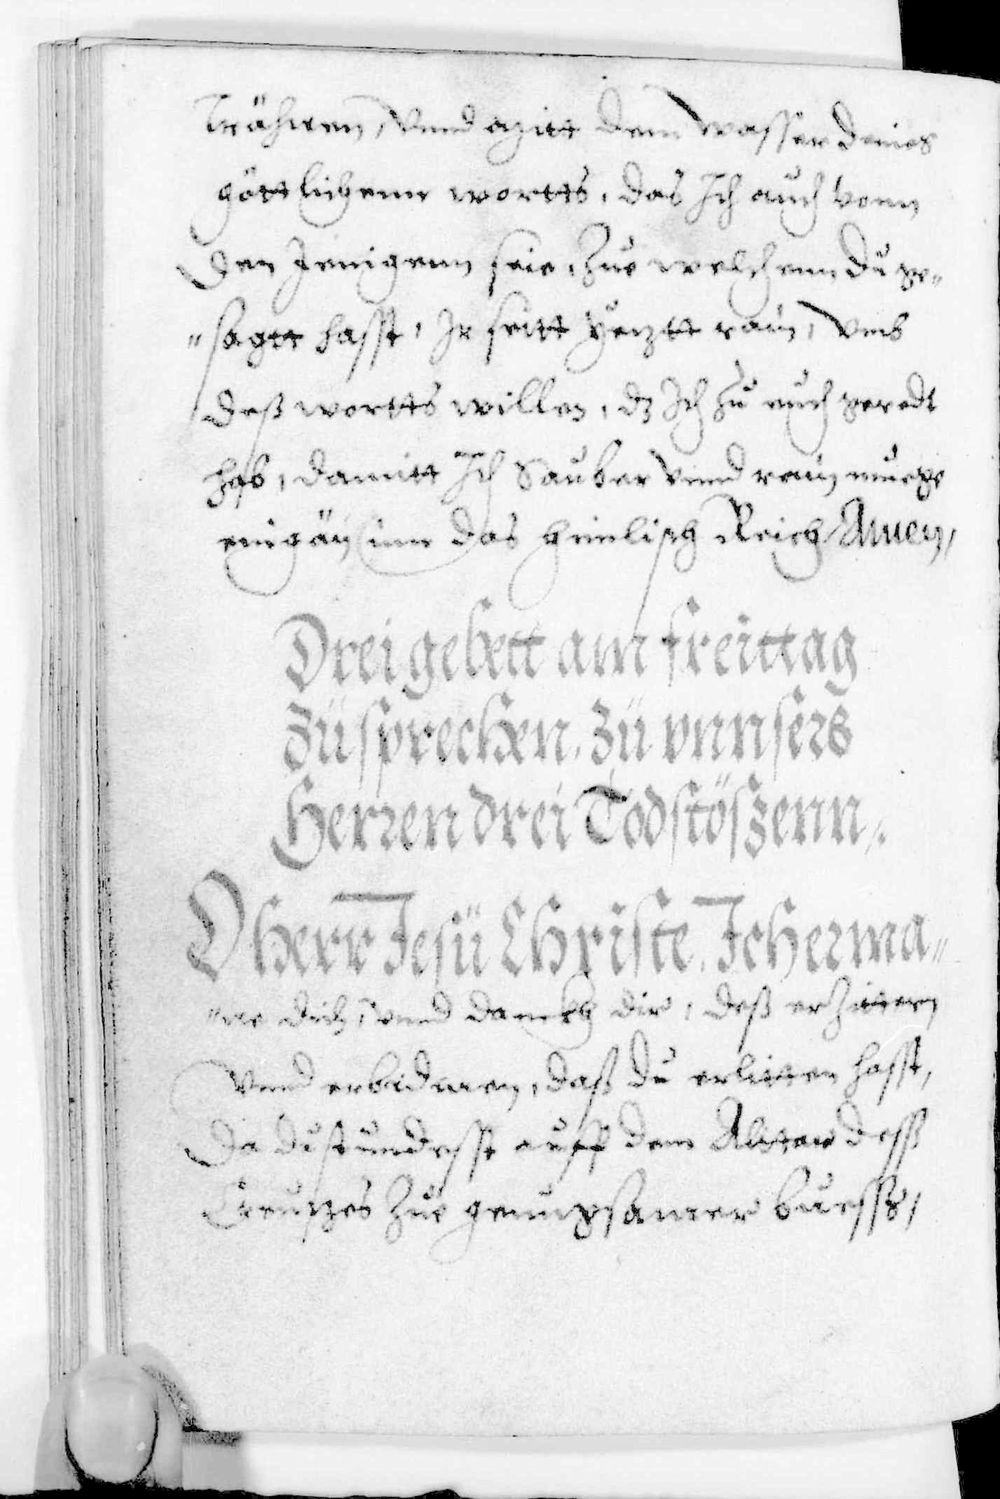 Trähern, vnnd mitt dem wasser deines
göttlichenn wortts, das Ich auch vonn
den Jenigenn seie, Zue welchenn du ge=
=sagtt hasst, Ir seitt yetztt rain, vmb
deß wortts willen, dz Ich zu euch geredt
hab, damitt Ich Sauber vnnd rain muege
eingän inn das himlisch Reich Amen,
Drei gebett am freittag
Zü sprechen, Zü vnnsers
Herren drei Todstöszenn,.
O herr Jesü Christe, Ich erma=
=ne dich, vnnd danckh dir, deß erzittern
vnnd erbidmen, daß du erlitten hasst,
Da du stundesst auff dem Altar dess
Creutzes Zue genuegsamer buessz,